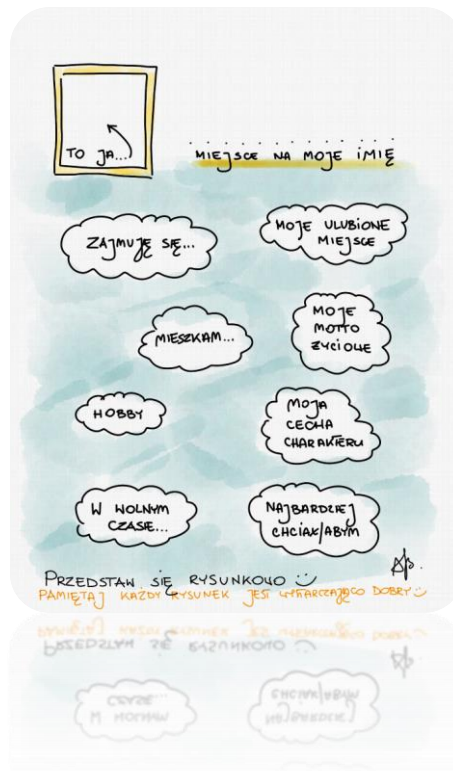 TO JA...
MIEJSCE NA MOJE IMIĘ
ZAJMUJĘ SIĘ...
MOJE ULUBIONE
MIEJSCE
MIESZKAM...
MOJE
MOTTO
ŻYCIOWE
HOBBY
MOJA
CECHA
CHARAKTERU
W WOLNYM
CZASIE...
NAJBARDZIEJ
CHCIAŁ/ABYM
PRZEDSTAW SIĘ RYSUNKOWO
PAMIĘTAJ KAŻDY RYSUNEK JEST WYSTARCZAJĄCO DOBRY